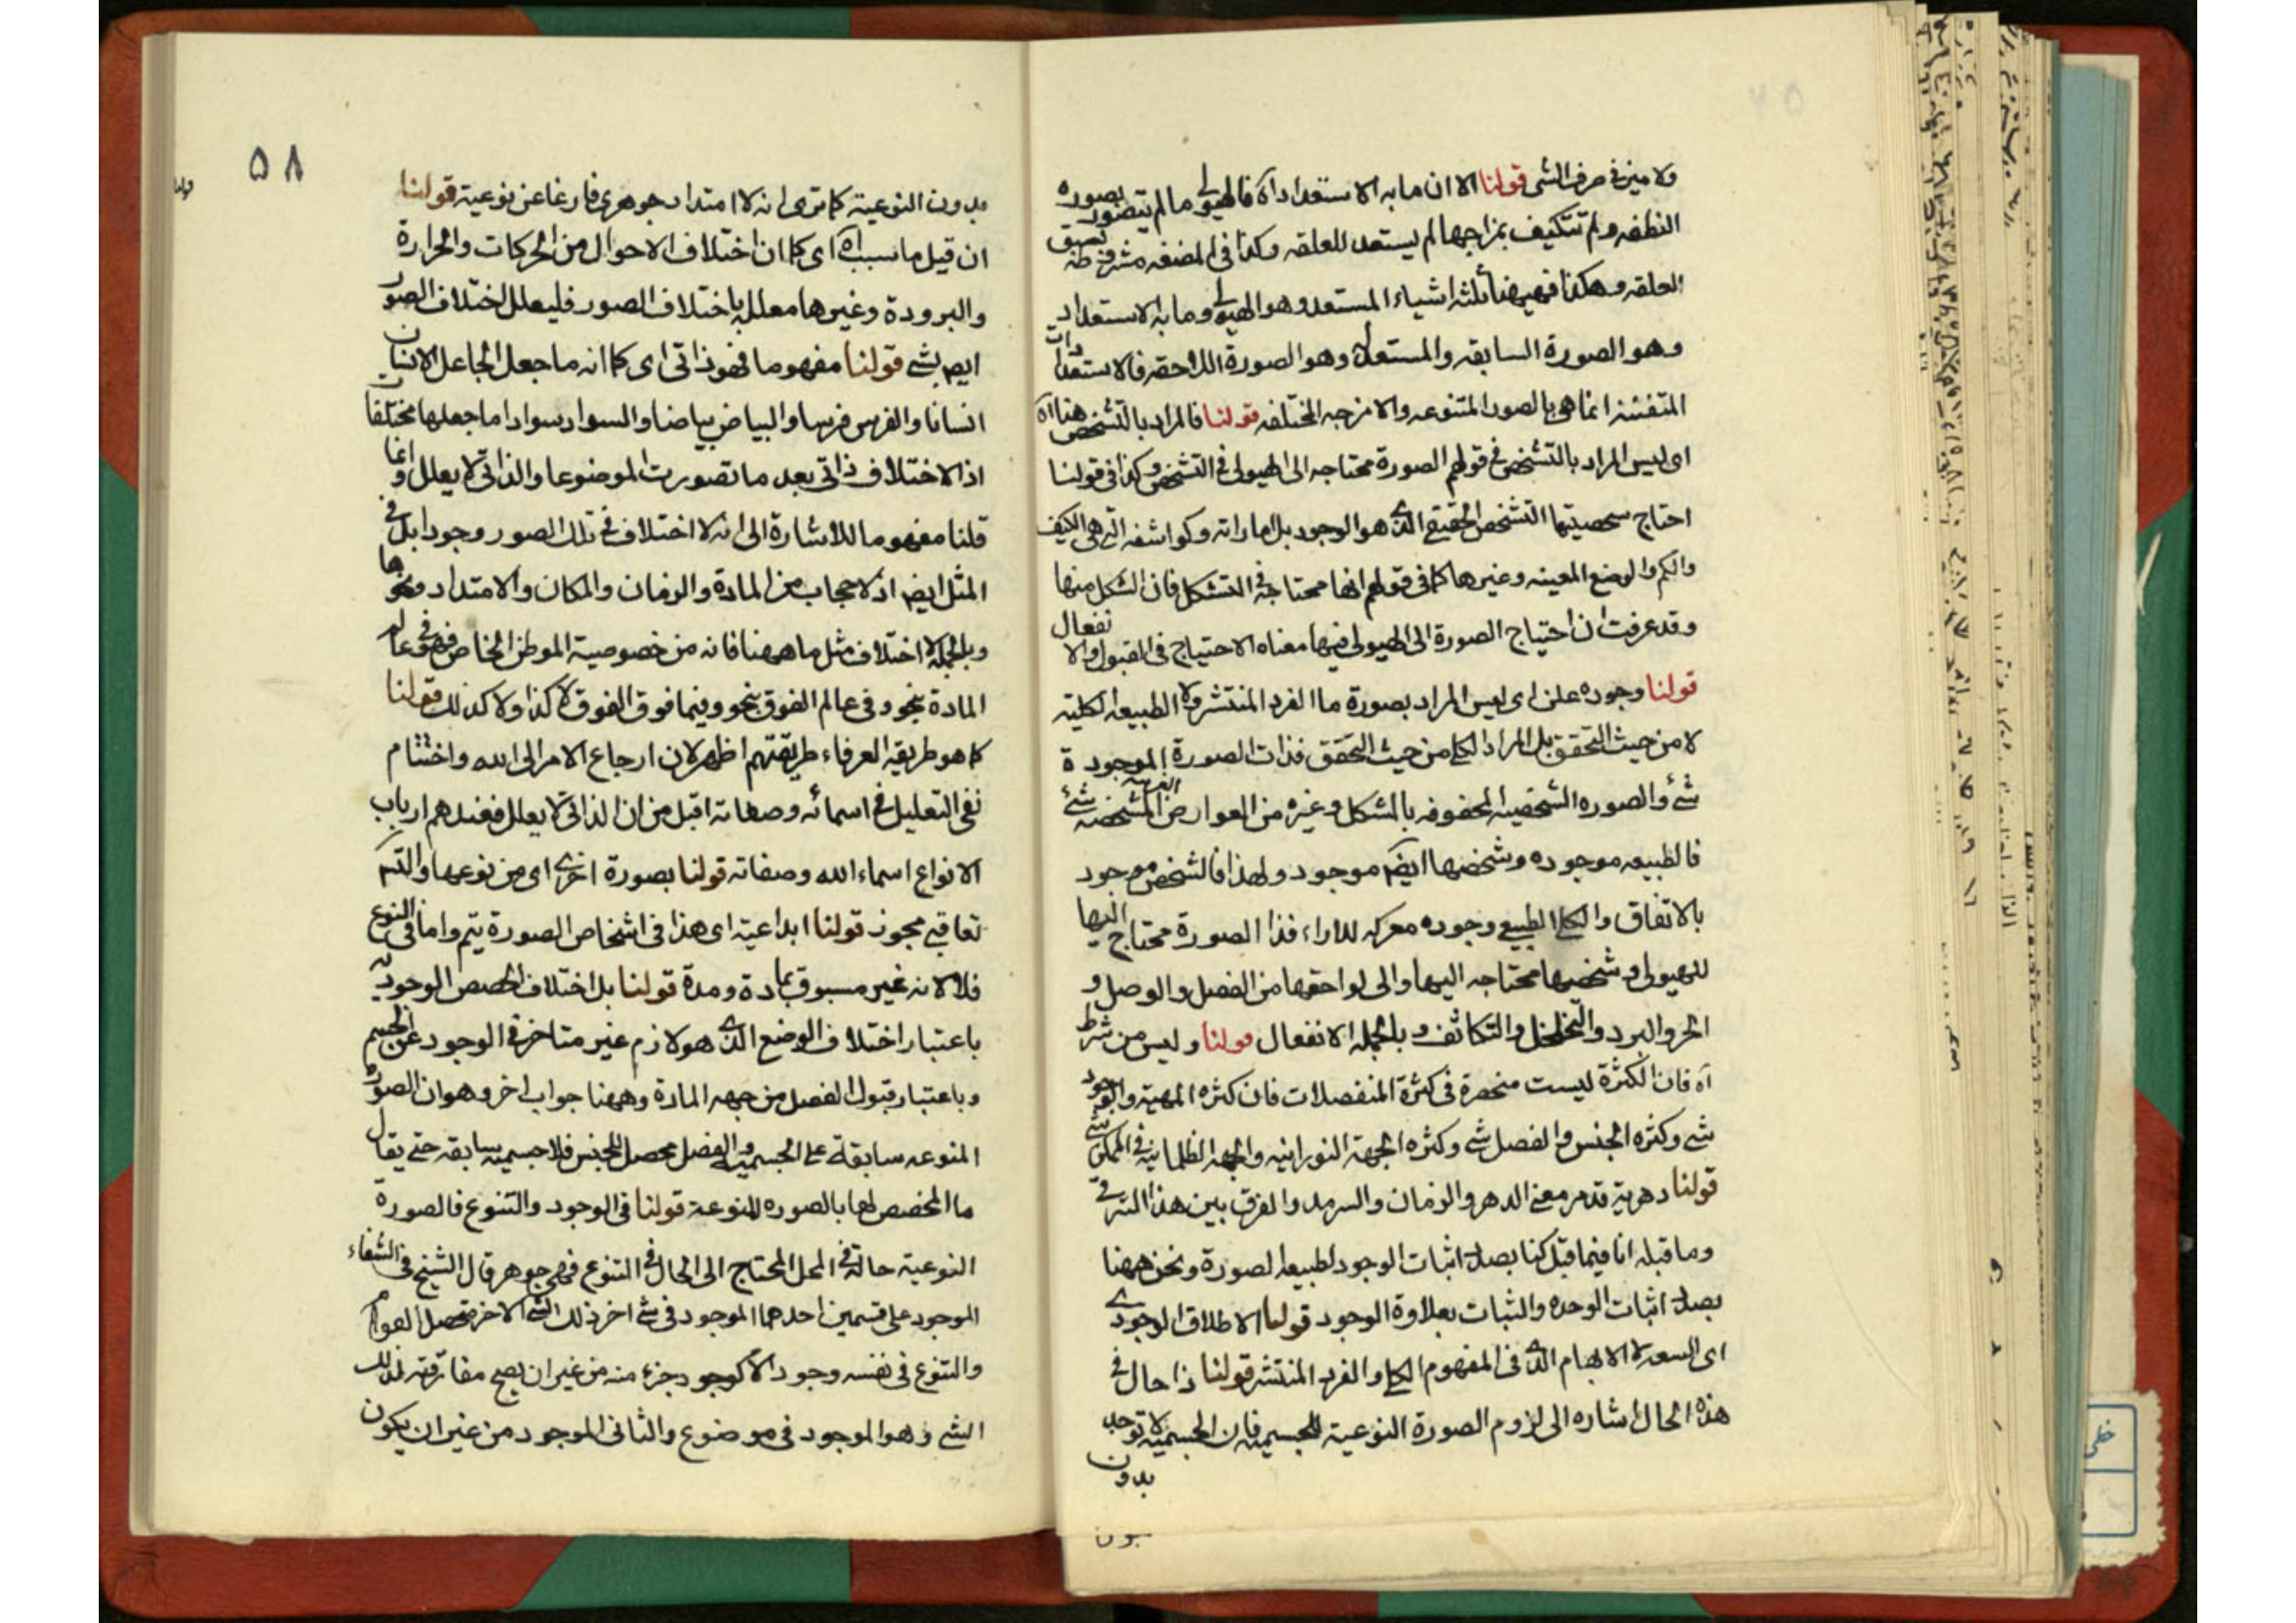 ولا ميز فى صرف الشى قولنا الا ان ما به الاستعداد اه فالهيولى ما لم يتصور بصوره
النطفه ولم تتكيف بمزاجها لم يستعد للعلقه وكذا فى المضغه
العلقه وهكذا فهيهنا ثلثه اشياء المستعد وهو الهيولى وما به الاستعداد
وهو الصورة السابقه والمستعد له وهو الصورة اللاحقه فالاستعدادات
المتفننه انما هى بالصور المتنوعه والامزجه المختلفه قولنا فالمراد بالتشخص هنا اه
اى ليس المراد بالتشخص فى قولهم الصورة محتاجه الى الهيولى فى التشخص وكذا فى قولنا
احتاج شخصيتها التشخص الحقيقى الذى هو الوجود بل اماراته وكواشفه التى هى الكيف
والكم والوضع المعينه وغيرها كما فى قولهم انها محتاجة فى التشكل فان الشكل منها
وقد عرفت ان احتياج الصورة الى الهيولى فيها معناه الاحتياج فى القبول والانفعال
قولنا وجوده على اى ليس المراد بصورة ما الفرد المنتشر ولا الطبيعه الكلية
لا من حيث التحقق بل المراد الكلى من حيث التحقق فذات الصورة الموجودة
شئ والصوره الشخصيه المحفوفه بالشكل وغيره من العوارض المشخصه شئ
فالطبيعه موجوده وشخصها ايضا موجود ولهذا فالشخص موجود
بالاتفاق والكلى الطبيعى وجوده معركه للاراء فذا الصورة محتاج اليها
للهيولى وشخصها محتاجه اليها والى لواحقها من الفصل والوصل و
الحر والبرد والتخلخل والتكاثف وبالجمله الانفعال قولنا وليس من شرط
اه فان الكثرة ليست منحصرة فى كثرة المنفصلات فان كثره المهية والوجود
شى وكثره الجنس والفصل شى وكثره الجهة النورانيه والجهه الظلمانيه فى الممكن شى
قولنا دهرية قد مر معنى الدهر والزمان والسرمد والفرق بين هذا الترقى
وما قبله انا فيما قبل كنا بصدد اثبات الوجود لطبيعه الصورة ونحن ههنا
بصدد اثبات الوحده والثبات بعلاوة الوجود قولنا الاطلاق الوجودى
اى السعه لا الابهام الذى فى المفهوم الكلى والفرد المنتشر قولنا ذا حال فى
هذه الحال اشاره الى لزوم الصورة النوعية للجسميه فان الجسميه لا توجد
بدون
٥٨
قولنا
بدون النوعية كما ترى انه لا امتداد جوهرى فارغا عن نوعية قولنا
ان قيل ما سبب اه اى كما ان اختلاف الاحوال من الحركات والحرارة
والبرودة وغيرها معلل باختلاف الصور فليعلل اختلاف الصور
ايضا بشى قولنا مفهوما فهو ذاتى اى كما انه ما جعل الجاعل الانسان
انسانا والفرس فرسا والبياض بياضا والسواد سوادا ما جعلها مختلفا
اذ الاختلاف ذاتى بعد ما تصورت الموضوعا والذاتى لا يعلل وانما
قلنا مفهوما للاشارة الى انه لا اختلاف فى تلك الصور وجودا بل فى
المثل ايضا اذ لا حجاب من المادة والزمان والمكان والامتداد ونحوها
وبالجملة لا اختلاف مثل ما ههنا فانه من خصوصية الموطن الخاص فهو فى عالم
المادة بنحو وفى عالم الفوق بنحو وفيما فوق الفوق لا كذا ولا كذلك قولنا
كما هو طريقه العرفاء طريقتهم اظهر لان ارجاع الامر الى الله واختتام
نفى التعليل فى اسمائه وصفاته اقبل من ان الذاتى لا يعلل فعندهم ارباب
الانواع اسماء الله وصفاته قولنا بصورة اخرى اى من نوعها والتـم
تعاقبى مجوز قولنا ابداعية اى هذا فى اشخاص الصورة يتم واما فى النوع
فلا لانه غير مسبوق بمادة ومدة قولنا بل اختلاف الحصص الوجودية
باعتبار اختلاف الوضع الذى هو لازم غير متاخر فى الوجود عن الجسم
وباعتبار قبول الفصل من جهه المادة وههنا جواب اخر وهو ان الصورة
المنوعه سابقة على الجسمية والفصل محصل للجنس فلا جسميه سابقه حتى يقال
ما المخصص لها بالصوره المنوعة قولنا فى الوجود والتنوع فالصورة
النوعية حالة فى المحل المحتاج الى الحال فى التنوع فهى جوهر قال الشيخ فى الشفاء
الموجود على قسمين احدهما الموجود فى شى اخر ذلك الشى الاخر متحصل القوام
والتنوع فى نفسه وجودا لا كوجود جزء منه من غير ان يصح مفارقته لذلك
الشى وهو الموجود فى موضوع والثانى الموجود من غير ان يكون